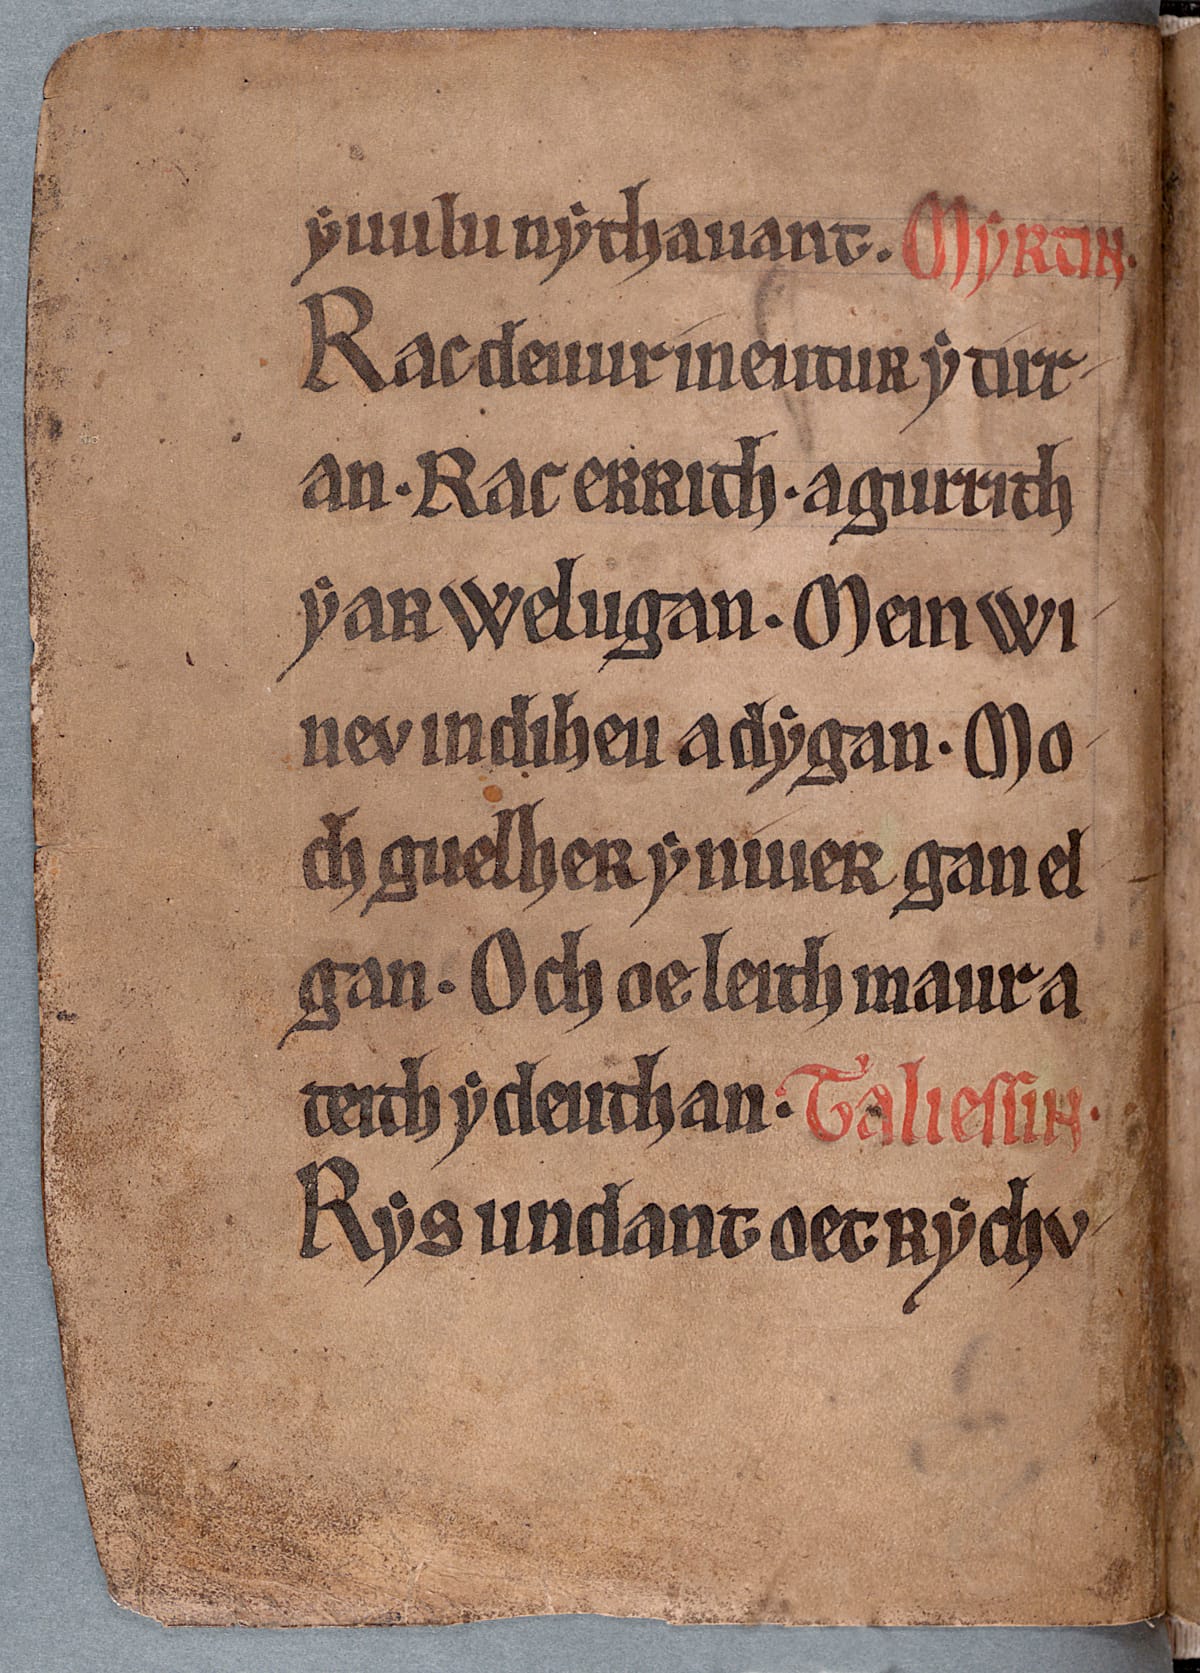 ẏuulu nẏthauant. Mẏrtin.
Rac deuur in eutur ẏ tirr
an. Rac errith. a gurrith
ẏ ar welugan. Mein wi
nev in diheu a dẏgan. Mo
ch guelher ẏ niuer gan el
gan. Och oe leith maur a
teith ẏ deuthan. Taliessin.
Rẏs undant oet rẏchv